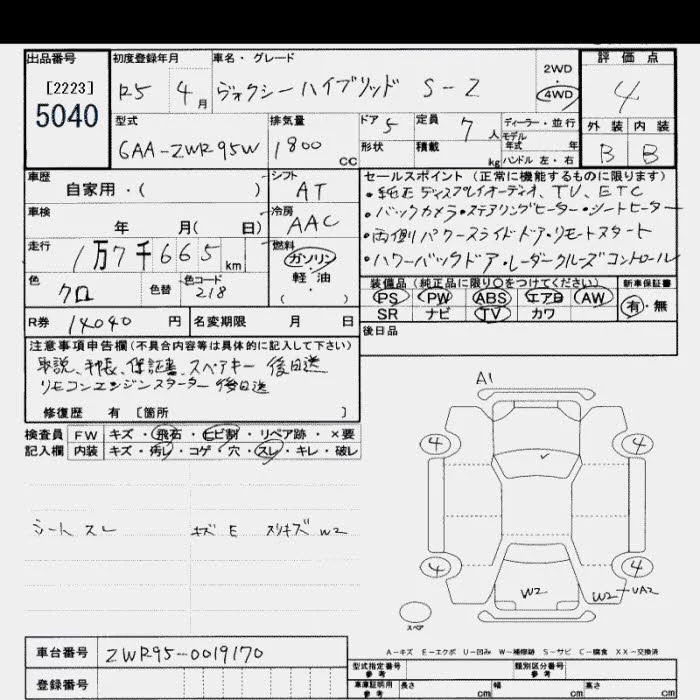 出品番号
[2223]
5040
初度登録年月
R5 4月
車名・グレード
ヴォクシーハイブリッド S-Z
2WD
・
4WD
評価点
4
外装 内装
B B
型式
6AA-ZWR95W
排気量
1800 CC
ドア 5
定員 7 人
形状
積載 kg
ディーラー・並行
モデル
年式 年
ハンドル 左・右
車歴
自家用・( )
シフト
AT
車検
年 月( 日)
冷房
AAC
走行
1万7千665 km
燃料
ガソリン
軽・油
( )
色
クロ
色替
色コード
218
R券 14040 円
名変期限 月 日
セールスポイント(正常に機能するものに限ります)
・純正ディスプレイオーディオ、TV、ETC
・バックカメラ・ステアリングヒーター・シートヒーター
・両側パワースライドドア・リモートスタート
・パワーバックドア・レーダークルーズコントロール
装備品(純正品に限り○をつけてください)
PS PW ABS エアB AW
SR ナビ TV カワ
新車保証書
有・無
後日品
注意事項申告欄(不具合内容等は具体的に記入して下さい)
取説、手帳、保証書、スペアキー 後日送
リモコンエンジンスターター 後日送
修復歴 有 [箇所 ]
検査員
記入欄
FW キズ・飛石・ヒビ割・リペア跡・×要
内装 キズ・汚レ・コゲ・穴・スレ・キレ・破レ
シート スレ
キズ E スリキズ W2
A1
4 4
4 4
W2 W2 UA2
スペア
A-キズ E-エクボ U-凹み W-補修跡 S-サビ C-腐食 XX-交換済
車台番号 ZWR95-0019170
登録番号
型式指定番号
参考
類別区分番号
参考
車庫証明用
参考
長さ cm 幅 cm 高さ cm